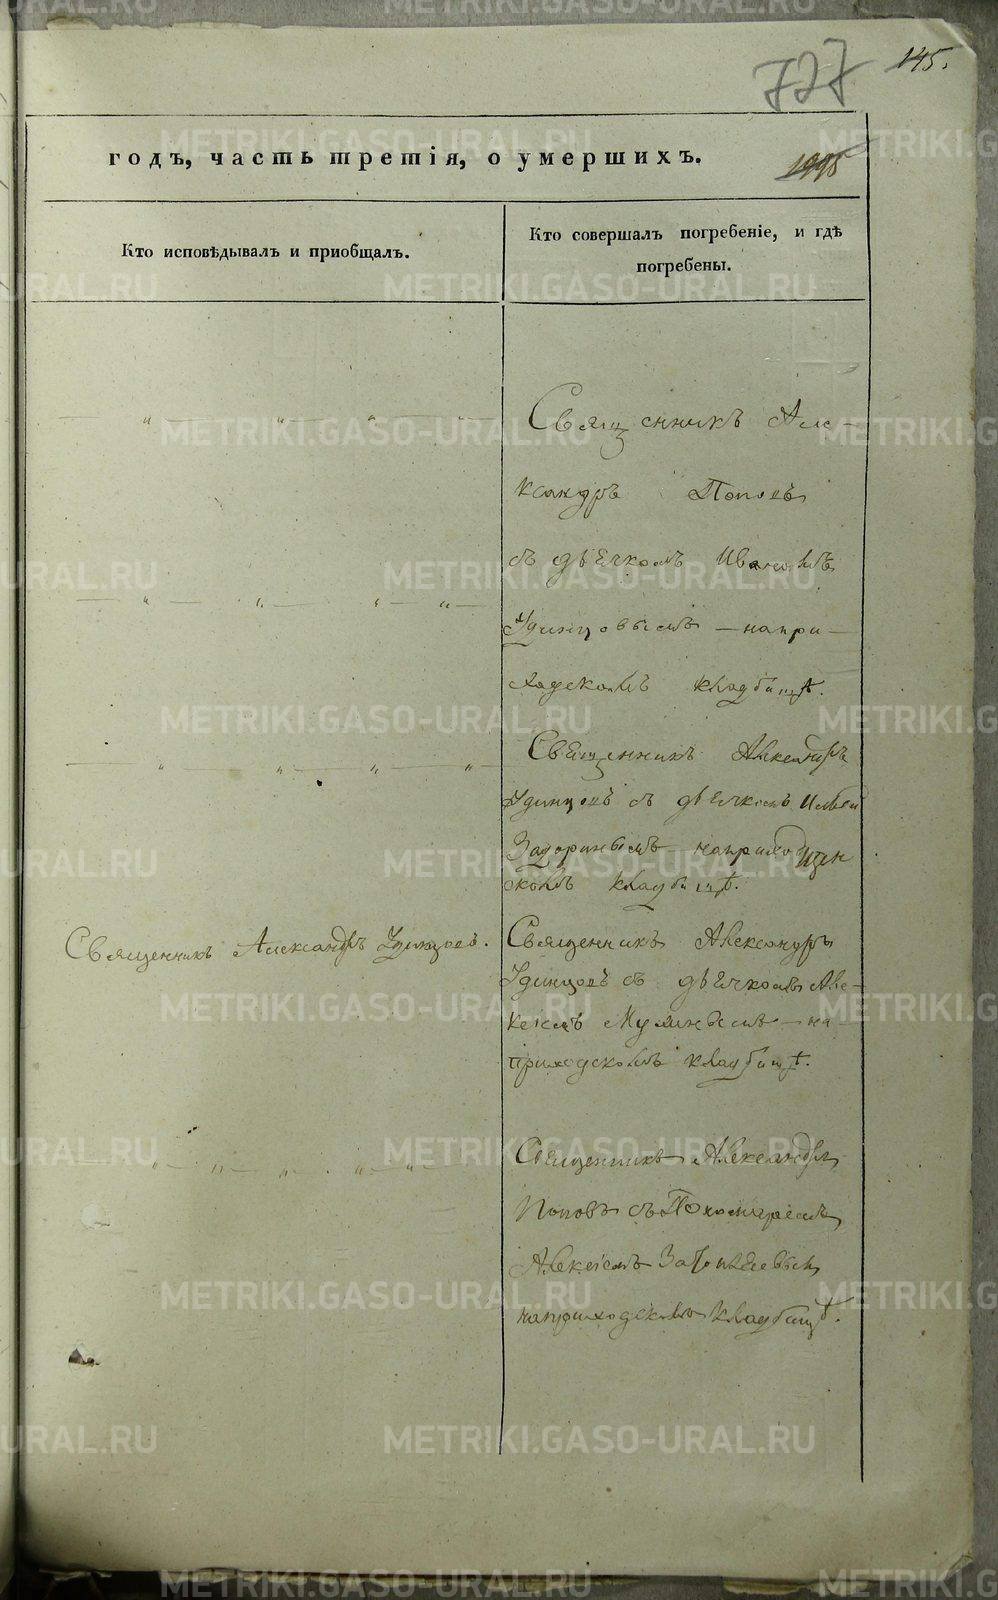 145.
727
годъ, часть третія, о умершихъ.
Кто исповѣдывалъ и приобщалъ.
Кто совершалъ погребеніе, и гдѣ
погребены.
Священникъ Але-
ксандръ Поповъ
съ дьячкомъ Иваномъ
Удинцовымъ - на при-
ходскомъ кладбищѣ.
Священникъ Александръ
Удинцовъ съ дьячкомъ Ильей
Задоринымъ - на приход
скомъ кладбищѣ.
Священникъ Александръ Удинцовъ.
Священникъ Александръ
Удинцовъ съ дьячкомъ Але-
кеіемъ - на
приходскомъ кладбищѣ.
Священникъ Александръ
Поповъ съ Пономаремъ
Алексіемъ
на приходскомъ кладбищѣ.
METRIKI.GASO-URAL.RU